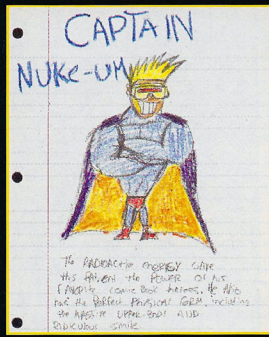 CAPTAIN
NUKE-UM
The RADIOACTIVE ENERGY GAVE
this PATIENT the POWER OF HIS
FAVORITE COMIC BOOK HEROES. He ALSO
has the PERFECT PHYSICAL FORM, including
the MASSIVE UPPER-BODY AND
RIDICULOUS SMILE